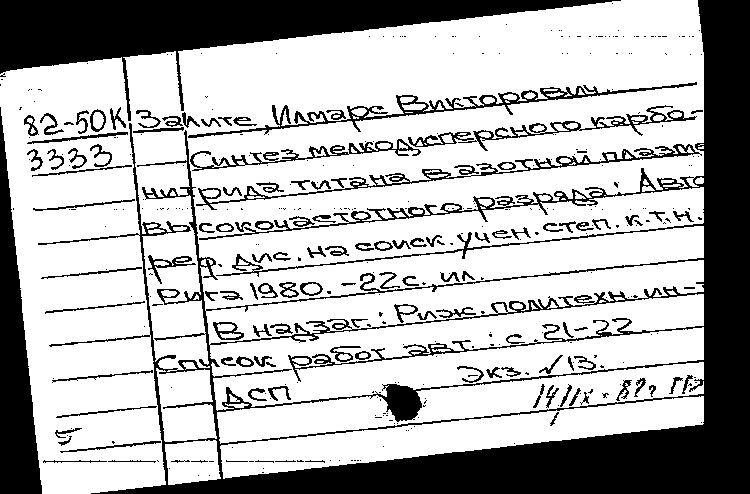 82-50К Залите, Илмарс Викторович.
3333 Синтез мелкодисперсного карбо-
нитрида титана в азотной плазме
высокочастотного разряда: Авто
реф. дис. на соиск. учен. степ. к.т.н.
Рига, 1980. - 22с., ил.
В надзаг.: Риж. политехн. ин-т
Список работ авт.: с. 21-22
Экз. √ 13.
ДСП
14/IX-82г
5